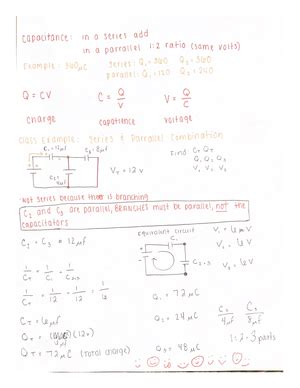 Capacitance: in a series add
in a parrallel 1:2 ratio (same volts)
Example: 360µC Series: Q₁ = 360 Q₂ = 360
parallel: Q₁ = 120 Q₂ = 240
Q = CV C = Q/V V = Q/C
charge capatience voltage
Class Example: Series & Parrallel Combination
C₁ = 12µf C₃ = 8µf
Find CT QT
Q₁ Q₂ Q₃
V₁ V₂ V₃
VT = 12v
C₂ = 4µf
Not series because there is branching
C₂ and C₃ are parallel, BRANCHES must be parallel, not the capacitators
C₂ - C₃ = 12µf
equivalent circuit
C₁
C₂₋₃
V₁ = 6µV
V₂ = 6V
V₃ = 6V
1/CT = 1/C₁ - 1/C₂₋₃
1/CT = 1/12 1/12 = 1/6
Q₁ = 72µC
CT = 6µf
Q₂ = 24µC
C₂ C₃
4µf 8µf
QT = (12v)
1:2 - 3 parts
QT = 72µC (total charge)
Q₃ = 48µC